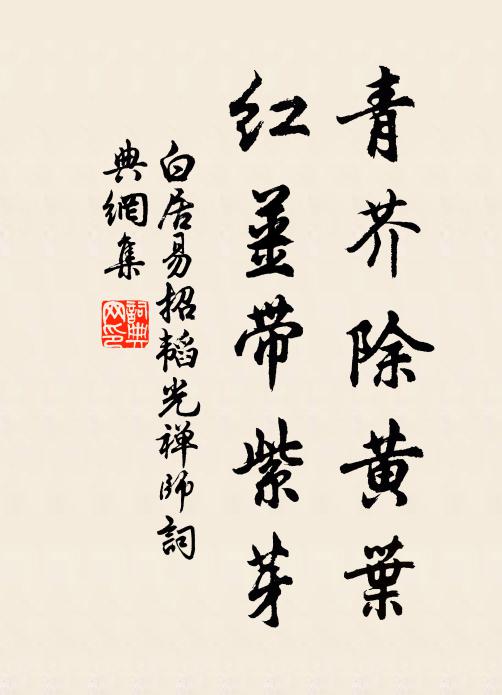 青芥除黄葉
红薑带紫芽
白居易招韬光禅师詞
典網集
詞典网印